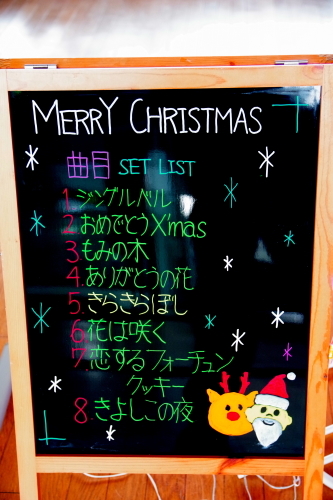 MERRY CHRISTMAS
曲目 SET LIST
1.ジングルベル
2.おめでとうX'mas
3.もみの木
4.ありがとうの花
5.きらきらぼし
6.花は咲く
7.恋するフォーチュン
クッキー
8.きよしこの夜